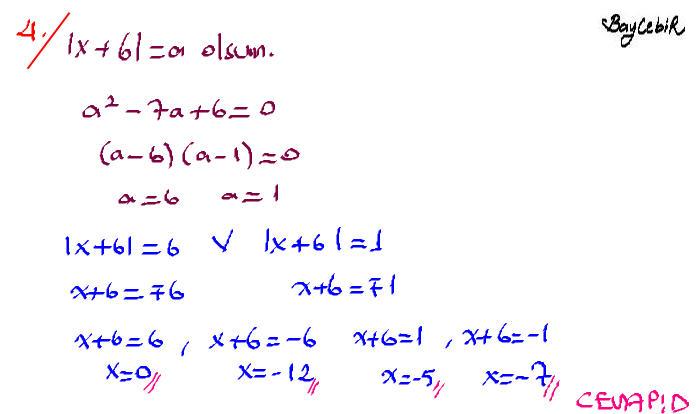 4./
BaycebiR
|x+6|=a olsun.
a²-7a+6=0
(a-6)(a-1)=0
a=6 a=1
|x+6|=6 ∨ |x+6|=1
x+6=∓6 x+6=∓1
x+6=6, x+6=-6 x+6=1, x+6=-1
x=0// x=-12// x=-5// x=-7//
CEVAP:D